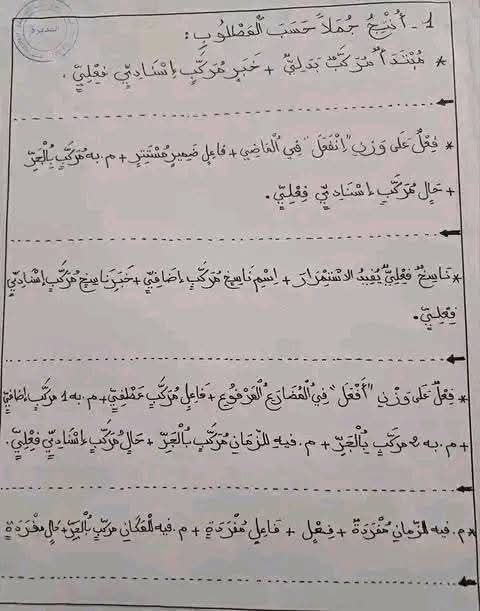 1 - أُنْتِجُ جُمَلاً حَسَبَ الْمَطْلُوبِ :
* مُبْتَدَأٌ مُرَكَّبٌ بَدَلِيٌّ + خَبَرٌ مُرَكَّبٌ إِسْنَادِيٌّ فِعْلِيٌّ .
* فِعْلٌ عَلَى وَزْنِ "اِنْفَعَلَ" فِي الْمَاضِي + فَاعِلٌ ضَمِيرٌ مُسْتَتِرٌ + م. به مُرَكَّبٌ بِالْجَرِّ
+ حَالٌ مُرَكَّبٌ إِسْنَادِيٌّ فِعْلِيٌّ .
* نَاسِخٌ فِعْلِيٌّ يُفِيدُ الاسْتِمْرَارَ + اِسْمُ نَاسِخٍ مُرَكَّبٌ إِضَافِيٌّ + خَبَرُ نَاسِخٍ مُرَكَّبٌ إِسْنَادِيٌّ
فِعْلِيٌّ .
* فِعْلٌ عَلَى وَزْنِ "أَفْعَلَ" فِي الْمُضَارِعِ الْمَرْفُوعِ + فَاعِلٌ مُرَكَّبٌ عَطْفِيٌّ + م. به 1 مُرَكَّبٌ إِضَافِيٌّ
+ م. به 2 مُرَكَّبٌ بِالْجَرِّ + م. فيه لِلزَّمَانِ مُرَكَّبٌ بِالْجَرِّ + حَالٌ مُرَكَّبٌ إِسْنَادِيٌّ فِعْلِيٌّ .
* م. فيه لِلزَّمَانِ مُفْرَدَةٌ + فِعْلٌ + فَاعِلٌ مُفْرَدَةٌ + م. فيه لِلْمَكَانِ مُرَكَّبٌ بِالْجَرِّ + حَالٌ مُفْرَدَةٌ